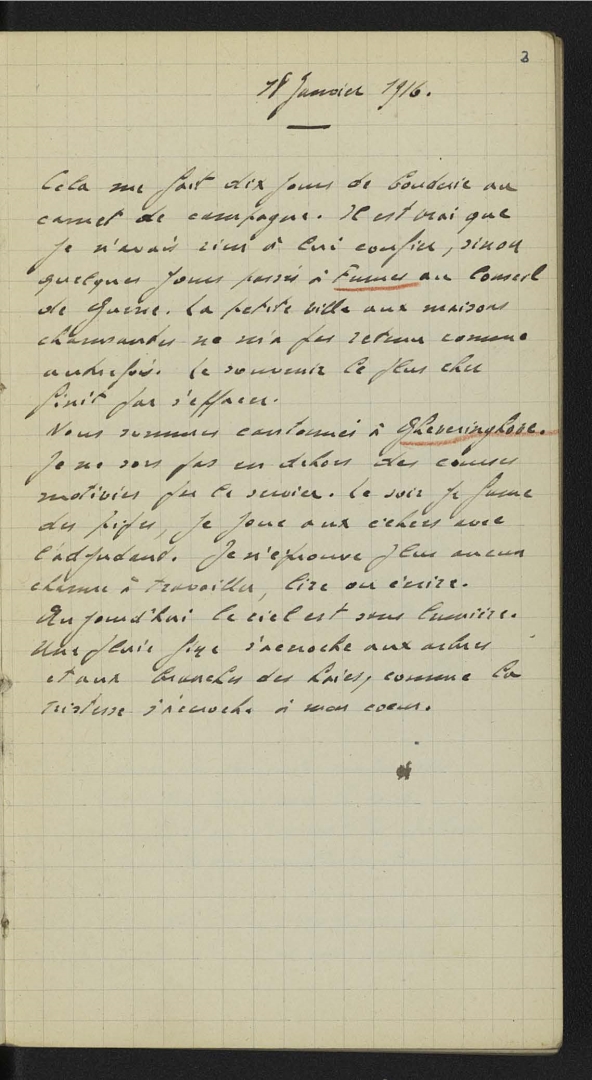 3
18 Janvier 1916.
Cela me fait dix jours de bouderie au
carnet de campagne. Il est vrai que
je n'avais rien à lui confier, sinon
quelques jours passés à Furnes au Conseil
de Guerre. La petite ville aux maisons
charmantes ne m'a pas retenu comme
autrefois. Le souvenir le plus cher
finit par s'effacer.
Nous sommes cantonnés à Gheveringhove.
Je ne sors pas en dehors des courses
motivées par le service. Le soir je fume
des pipes, je joue aux échecs avec
l'adjudant. Je n'éprouve plus aucun
charme à travailler, lire ou écrire.
Aujourd'hui le ciel est sans lumière.
Une pluie fine s'accroche aux arbres
et aux branches des haies, comme la
tristesse s'accroche à mon coeur.